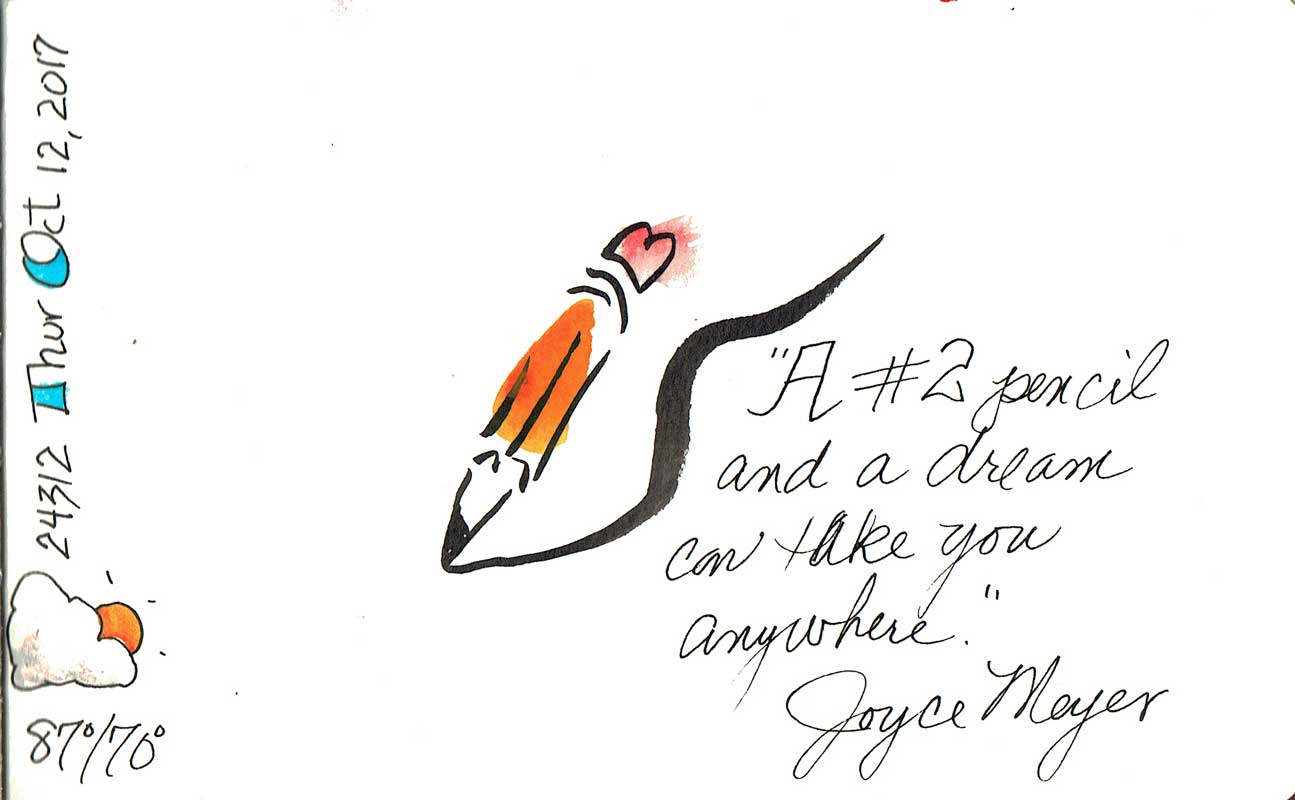 24312 Thur Oct 12, 2017
87°/70°
"A #2 pencil
and a dream
can take you
anywhere."
Joyce Meyer